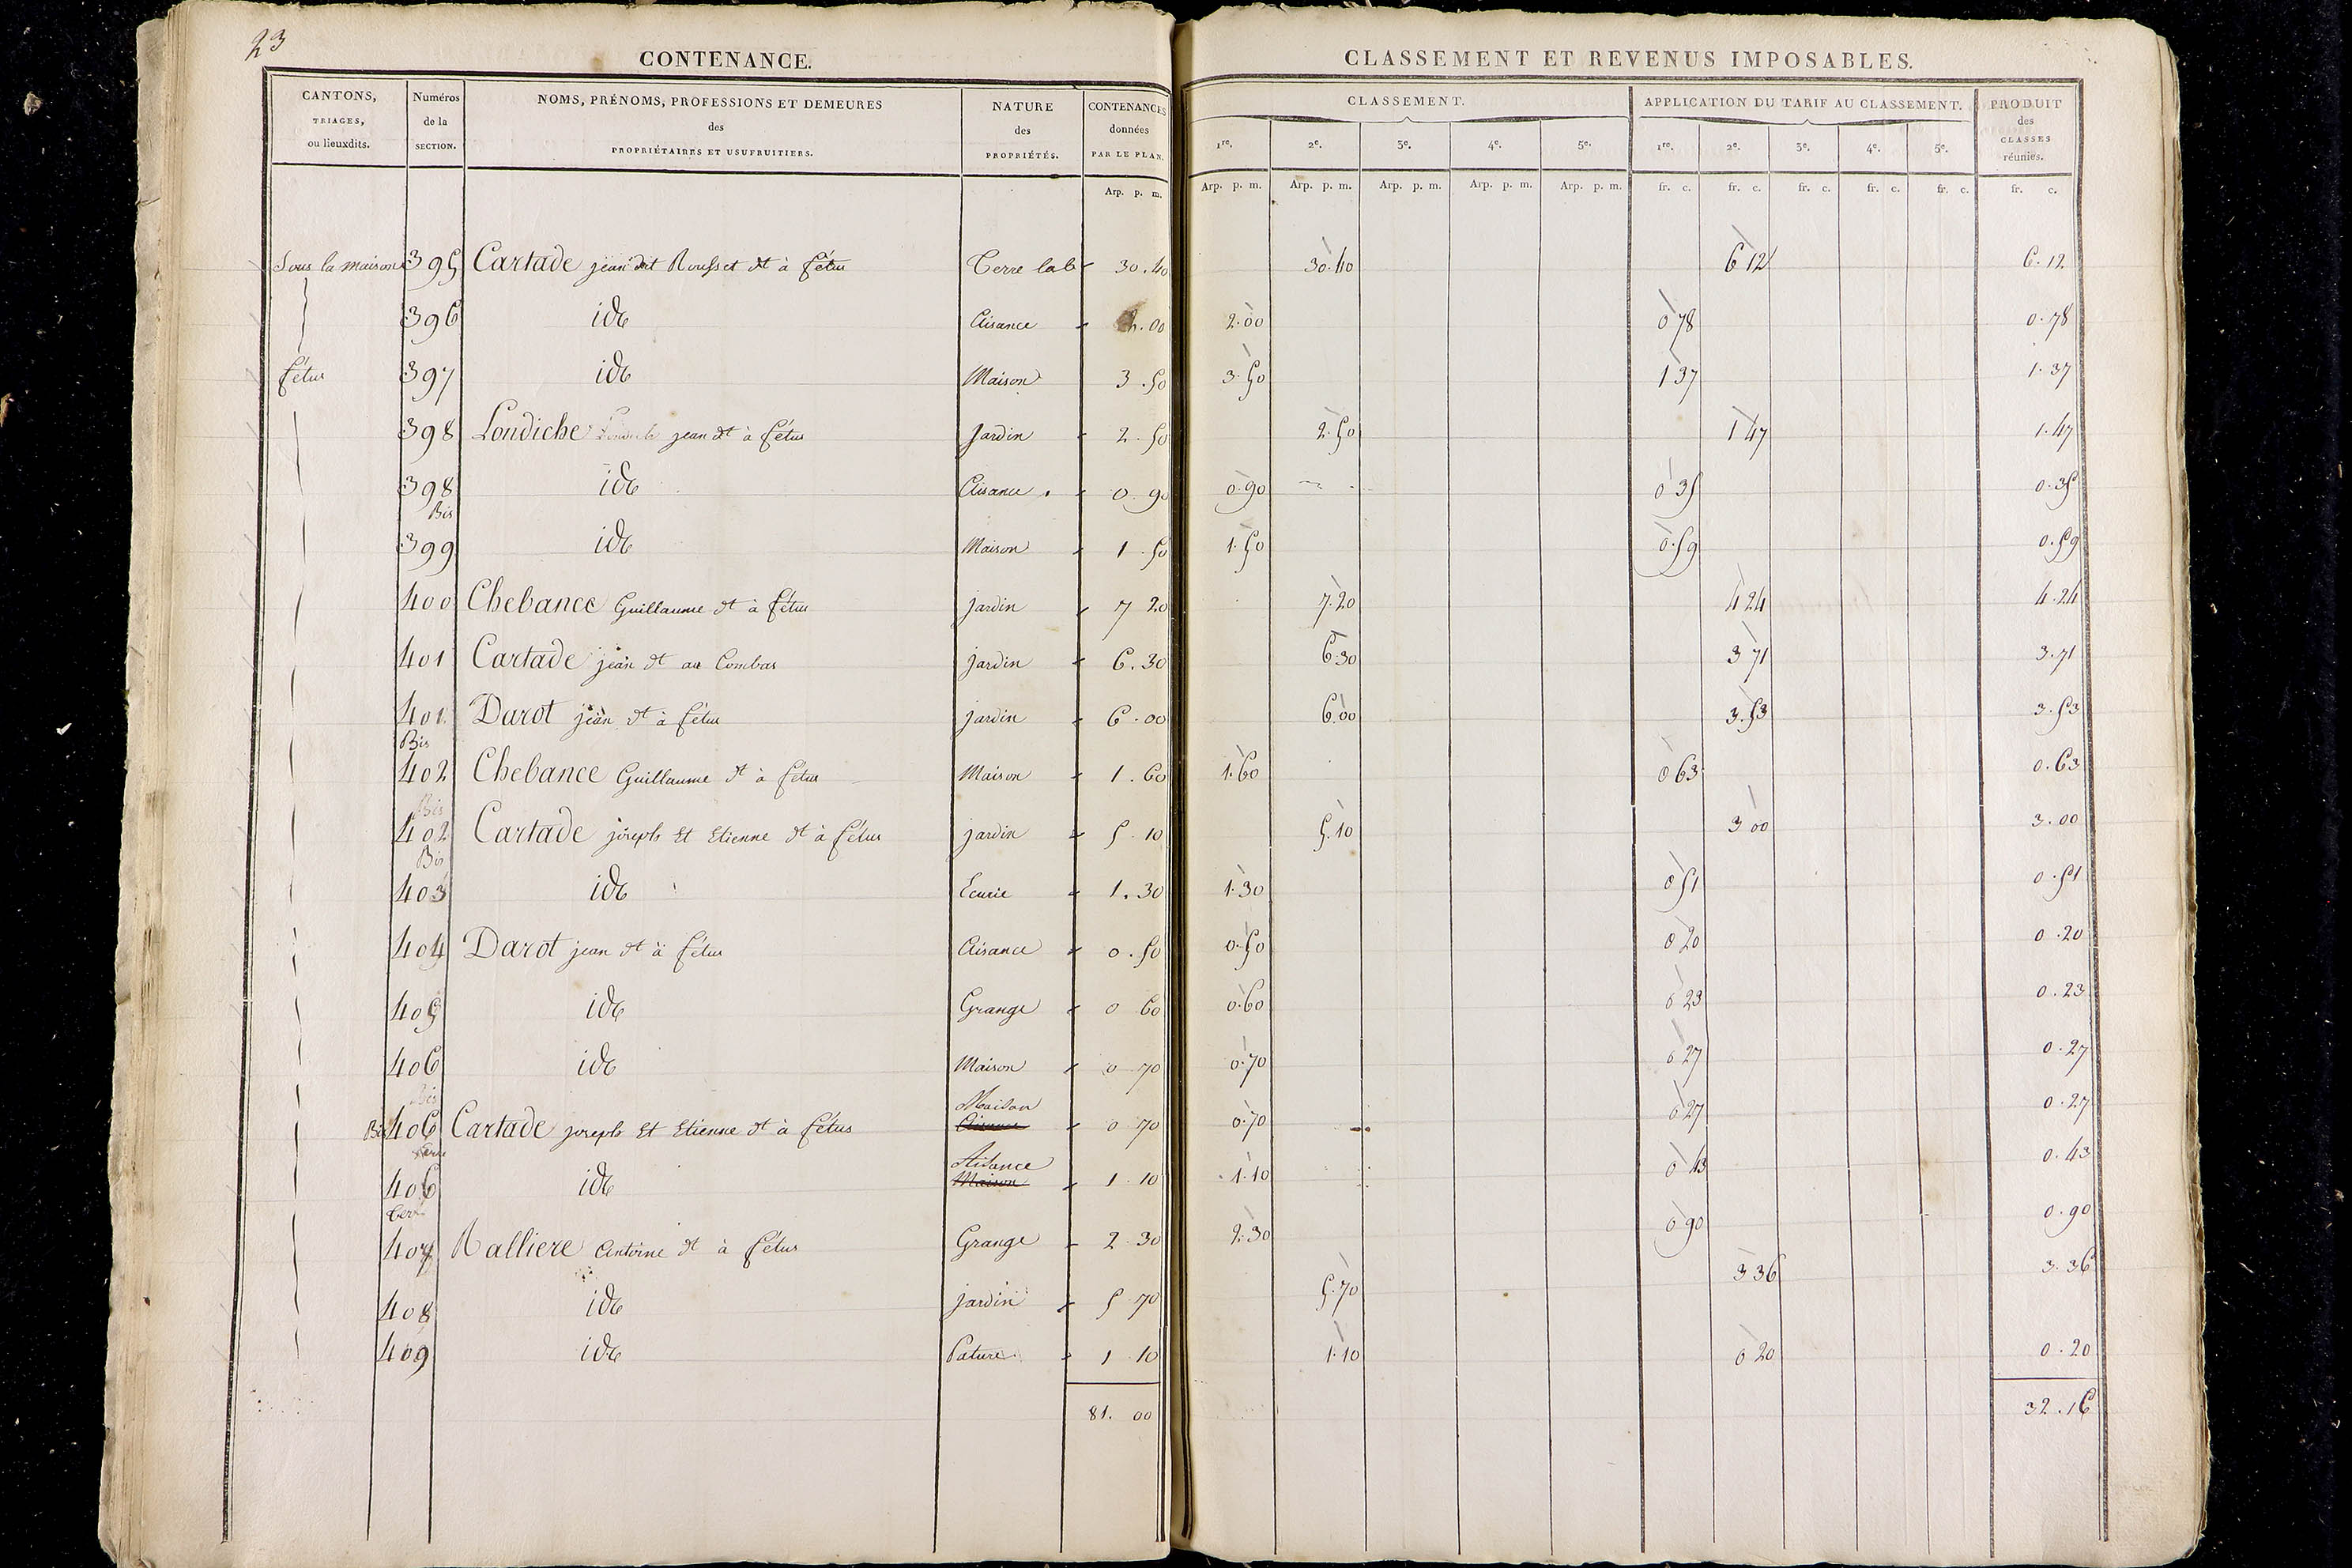 23
CONTENANCE.
CLASSEMENT ET REVENUS IMPOSABLES.
CANTONS, TRIAGES, ou lieuxdits.
Numéros de la SECTION.
NOMS, PRÉNOMS, PROFESSIONS ET DEMEURES des PROPRIÉTAIRES ET USUFRUITIERS.
NATURE des PROPRIÉTÉS.
CONTENANCES données PAR LE PLAN.
CLASSEMENT.
APPLICATION DU TARIF AU CLASSEMENT.
PRODUIT des CLASSES réunies.
1re. 2e. 3e. 4e. 5e. 1re. 2e. 3e. 4e. 5e.
Arp. p. m. Arp. p. m. Arp. p. m. Arp. p. m. Arp. p. m. Arp. p. m. fr. c. fr. c. fr. c. fr. c. fr. c. fr. c.
Sous la maison 395 Cartade jean dit Rousset dt à fétus Terre lab 30.40 30.40 6 12 6.12
396 ide Aisance 2.00 2.00 0 78 0.78
fétus 397 ide Maison 3.50 3.50 1 37 1.37
398 Londiche jean dt à fétus Jardin 2.50 2.50 1 47 1.47
398 Bis ide Aisance 0.90 0.90 0 35 0.35
399 ide Maison 1.50 1.50 0.59 0.59
400 Chebance Guillaume dt à fétus jardin 7 20 7.20 4 24 4.24
401 Cartade jean dt au Combas jardin 6.30 6.30 3 71 3.71
401 Bis Darot jean dt à fétus jardin 6.00 6.00 3.53 3.53
402 Chebance Guillaume dt à fétus Maison 1.60 1.60 0 63 0.63
Bis
402 Bis Cartade joseph Et Etienne dt à fétus jardin 5 10 5.10 3 00 3.00
403 ide Ecurie 1.30 1.30 0 51 0.51
404 Darot jean dt à fétus Aisance 0.50 0.50 0 20 0.20
405 ide Grange 0 60 0.60 0 23 0.23
406 ide Maison 0 70 0.70 0 27 0.27
Bis Maison
Bis 406 Cartade joseph Et Etienne dt à fétus Aisance 0 70 0.70 0 27 0.27
Aisance
406 ter ide Maison 1 10 1.10 0 43 0.43
407 Ralliere Antoine dt à fétus Grange 2 30 2.30 0 90 0.90
408 ide jardin 5 70 5.70 3 36 3.36
409 ide Pature 1 10 1.10 0 20 0.20
81. 00 32.16